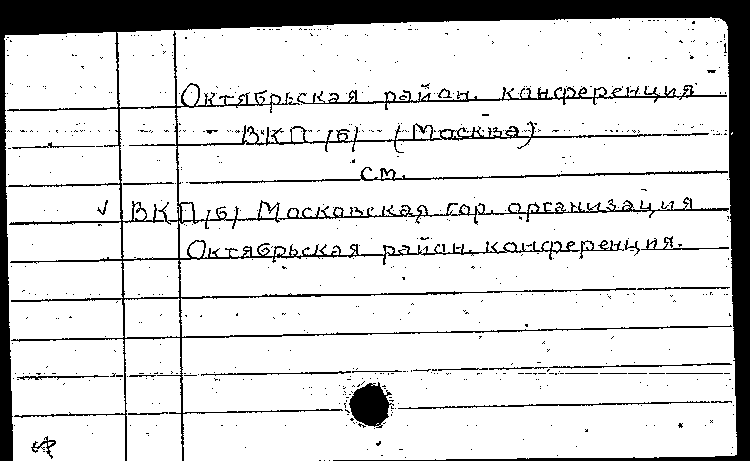 Октябрьская район. конференция
ВКП /б/ (Москва)
см.
✓ ВКП /б/ Московская гор. организация
Октябрьская район. конференция.